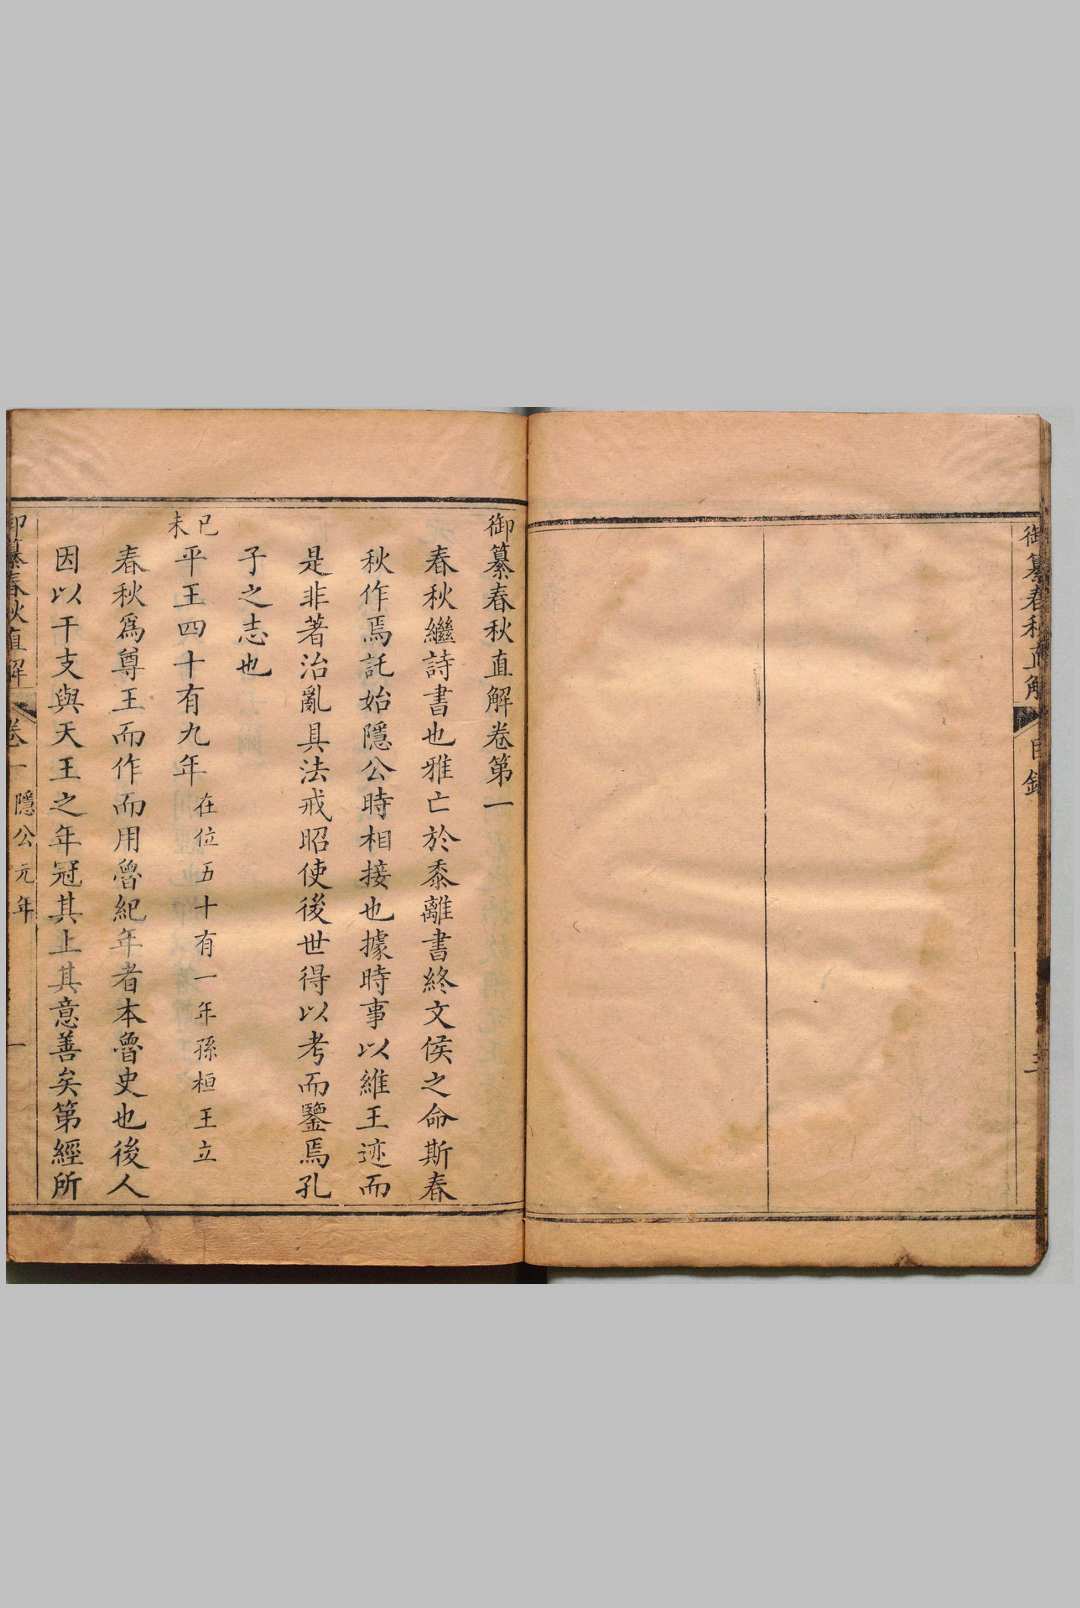 御纂春秋直解 目錄
御纂春秋直解卷第一
春秋繼詩書也雅亡於黍離書終文侯之命斯春
秋作焉託始隱公時相接也據時事以維王迹而
是非著治亂具法戒昭使後世得以考而鑒焉孔
子之志也
己未 平王四十有九年 在位五十有一年孫桓王立
春秋爲尊王而作而用魯紀年者本魯史也後人
因以干支與天王之年冠其上其意善矣第經所
御纂春秋直解 卷一 隱公元年 一